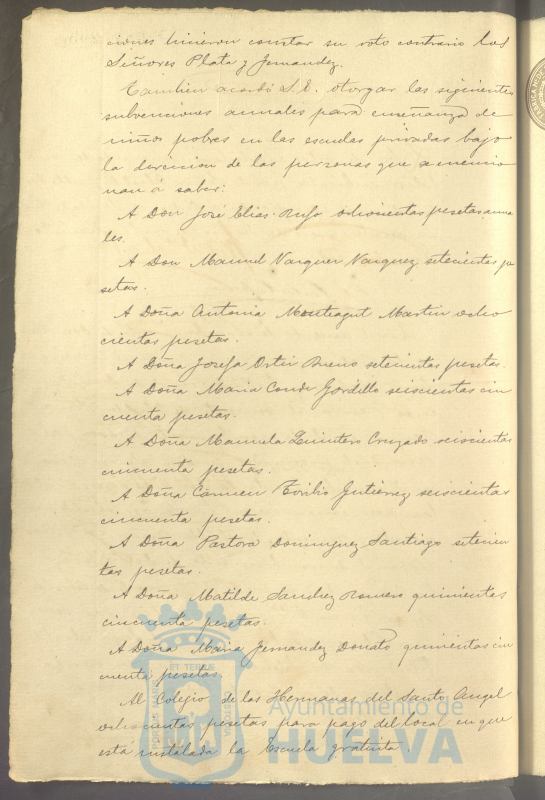 ciones hicieron constar su voto contrario los
Señores Plata y Fernandez.
Tambien acordó S.E. otorgar las siguientes
subvenciones anuales para enseñanza de
niños pobres en las escuelas privadas bajo
la direccion de las personas que se mencio
nan á saber:
A Don José Elias Rufo ochocientas pesetas anua
les.
A Don Manuel Vazquez Vazquez setecientas pe
setas.
A Doña Antonia Monteagut Martin ocho
cientas pesetas.
A Doña Josefa Ortiz Bueno setecientas pesetas.
A Doña Maria Conde Gordillo seiscientas cin
cuenta pesetas.
A Doña Manuela Quintero Cruzado seiscientas
cincuenta pesetas.
A Doña Cármen Gutiérrez seiscientas
cincuenta pesetas.
A Doña Pastora Dominguez Santiago setecien
tas pesetas.
A Doña Matilde Sanchez Romero quinientas
cincuenta pesetas.
A Doña Maria Fernandez Donato quinientas cin
cuenta pesetas.
Al Colegio de las Hermanas del Santo Angel
ochocientas pesetas para pago del local en que
está instalada la Escuela gratuita.
ET TERRAE
Ayuntamiento de
HUELVA